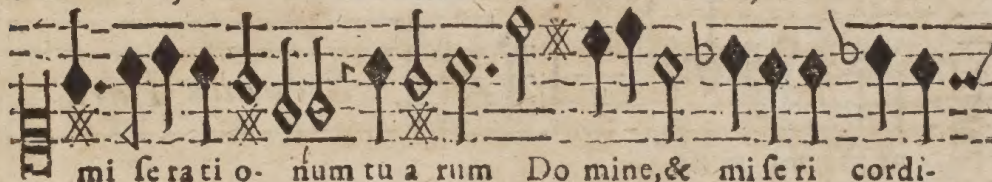 mi ſe ra ti o- num tu a rum Do mine,& mi ſe ri cordi-